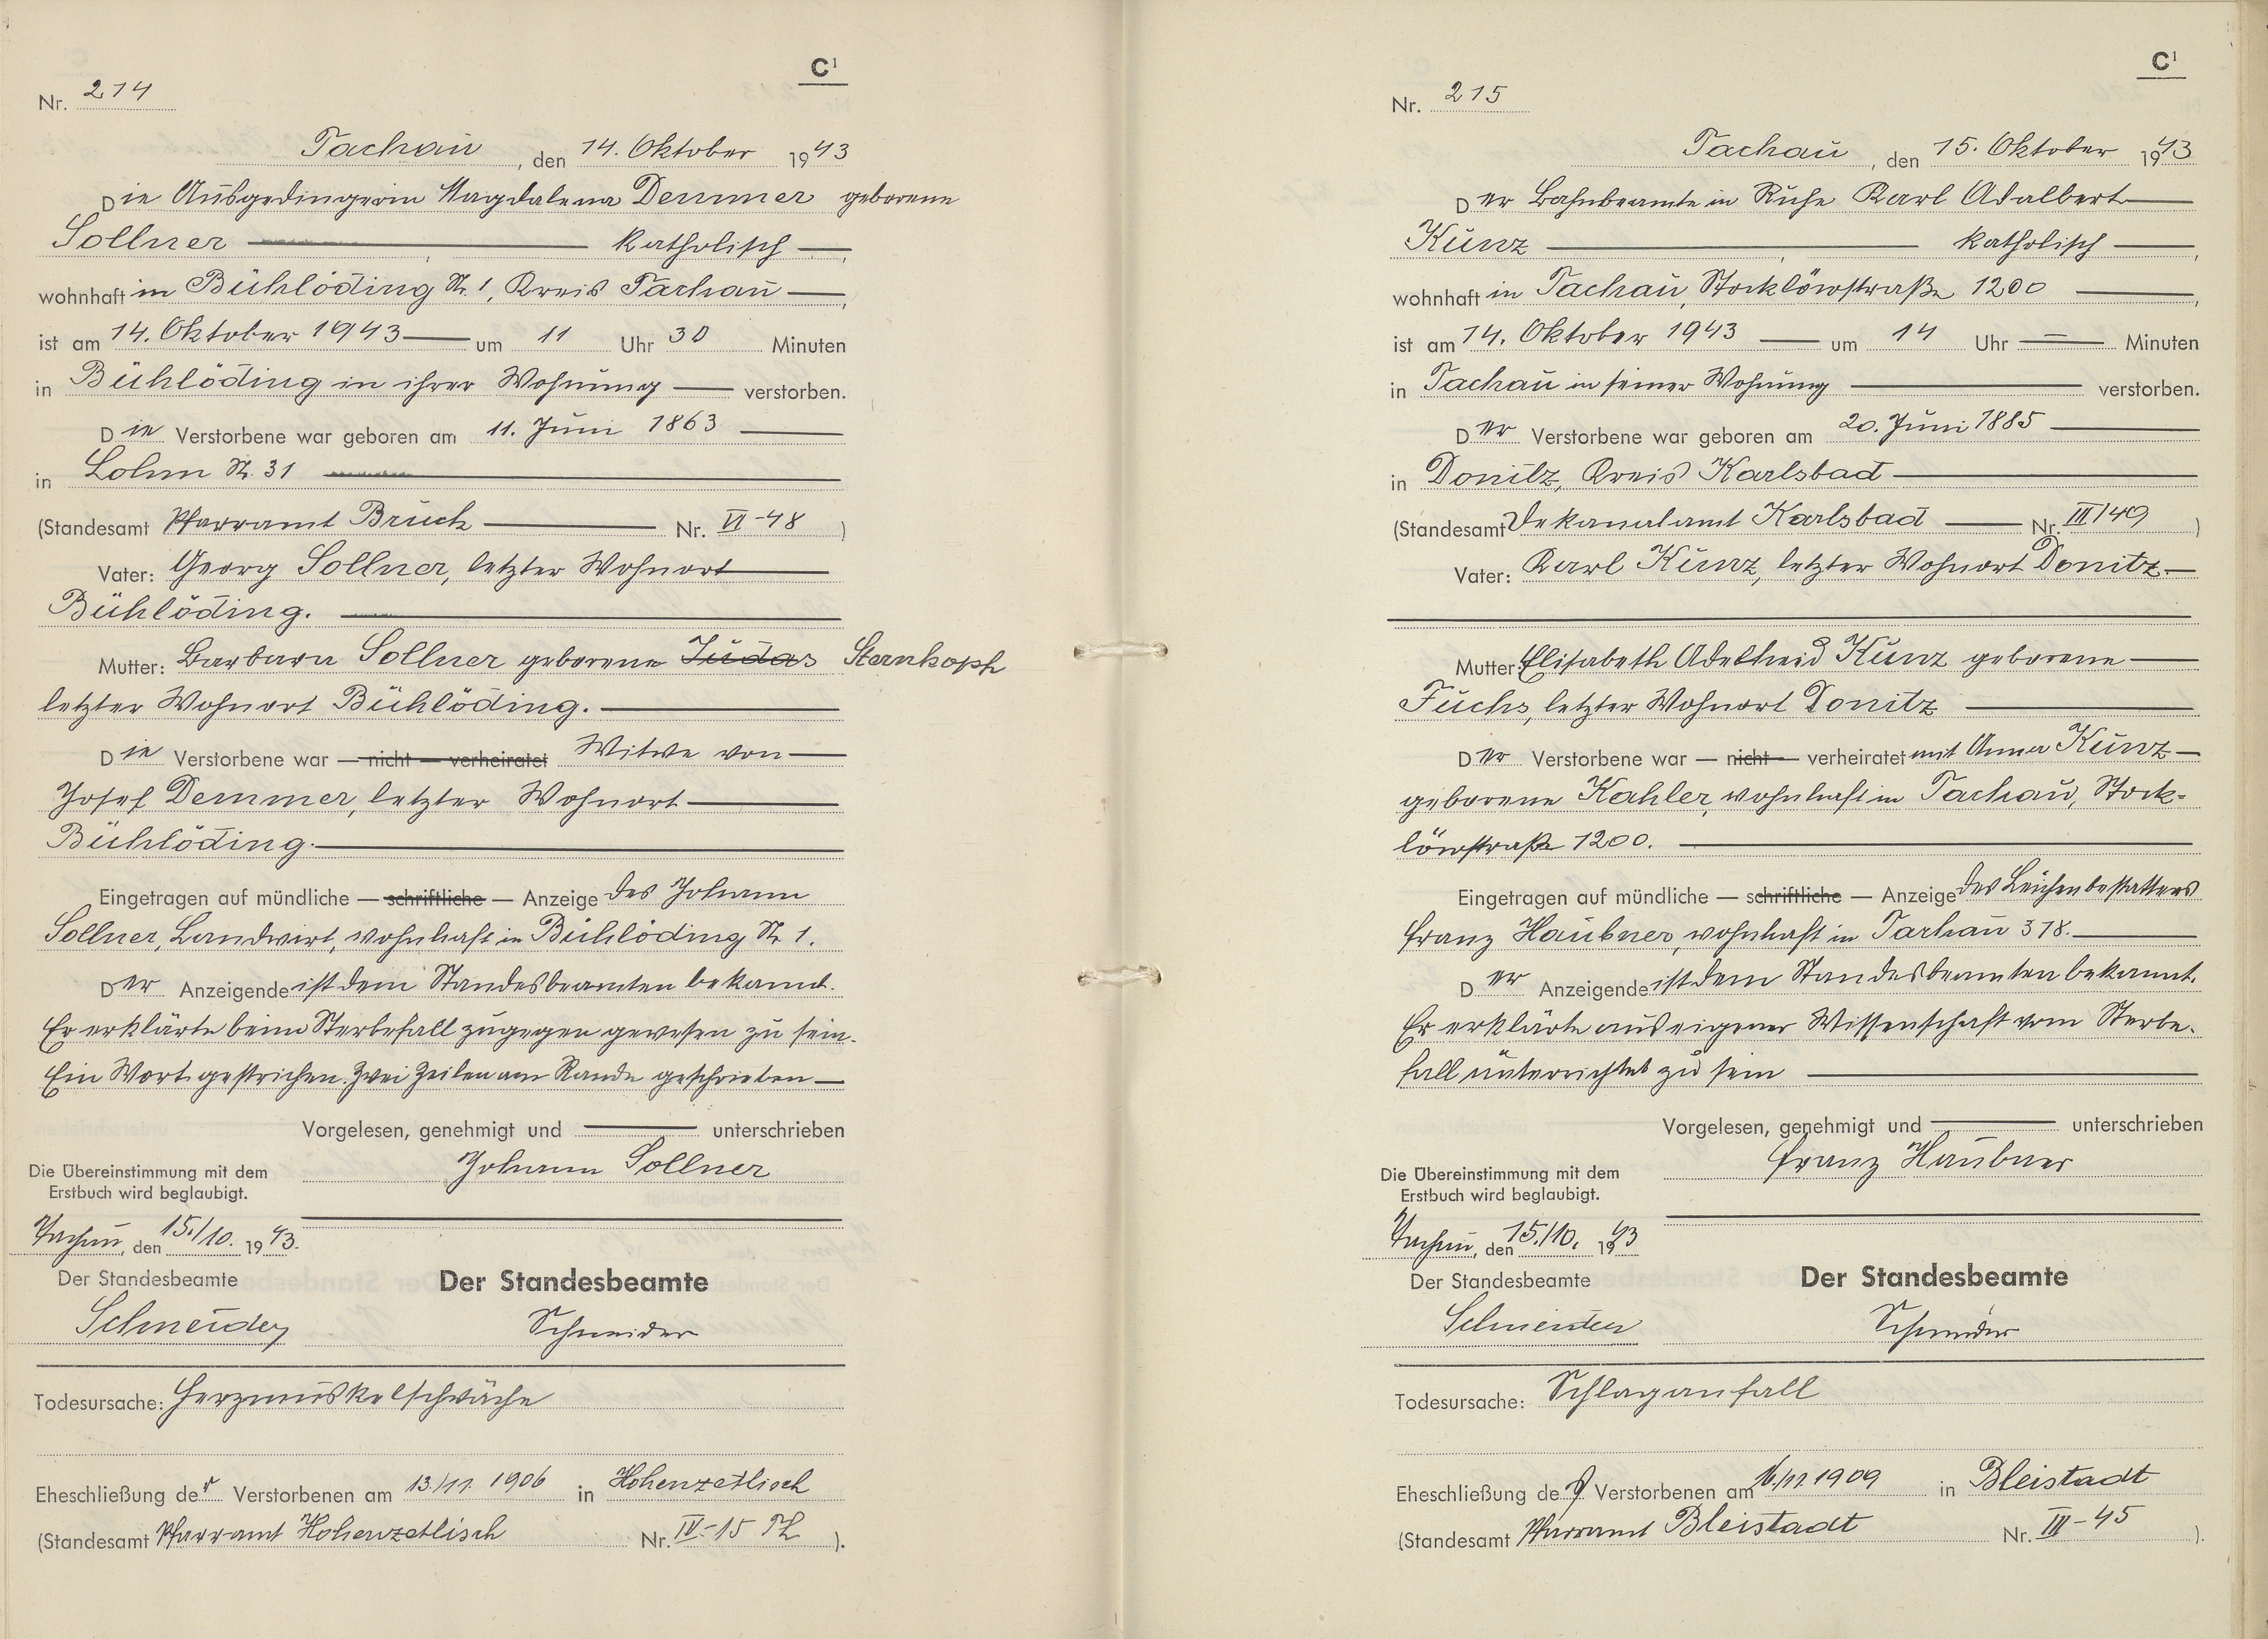 C¹
Nr. 214
Tachau, den 14. Oktober 1943
Die Ausgedingerin Magdalena Demmer geborene
Sollner — katholisch —,
wohnhaft in Bühlöding Nr. 1, Kreis Tachau —,
ist am 14. Oktober 1943 — um 11 Uhr 30 Minuten
in Bühlöding in ihrer Wohnung — verstorben.
Die Verstorbene war geboren am 11. Juni 1863 —
in Lohm Nr. 31 —
(Standesamt Pfarramt Bruck — Nr. VI-48)
Vater: Georg Sollner, letzter Wohnort —
Bühlöding. —
Mutter: Barbara Sollner geborene Judas Sternkopf
letzter Wohnort Bühlöding. —
Die Verstorbene war — nicht — verheiratet Witwe von —
Josef Demmer, letzter Wohnort —
Bühlöding. —
Eingetragen auf mündliche — schriftliche — Anzeige des Johann
Sollner, Landwirt, wohnhaft in Bühlöding Nr. 1.
Der Anzeigende ist dem Standesbeamten bekannt.
Er erklärte beim Sterbefall zugegen gewesen zu sein.
Ein Wort gestrichen. Zwei Zeilen am Rande geschrieben —
Vorgelesen, genehmigt und — unterschrieben
Johann Sollner
Die Übereinstimmung mit dem
Erstbuch wird beglaubigt.
Tachau, den 15./10. 1943.
Der Standesbeamte
Schneider
Der Standesbeamte
Schneider
Todesursache: Herzmuskelschwäche
Eheschließung der Verstorbenen am 13./11. 1906 in Hohenzetlisch
(Standesamt Pfarramt Hohenzetlisch Nr. IV-15 Th).
C¹
Nr. 215
Tachau, den 15. Oktober 1943
Der Bahnbeamte in Ruhe Karl Adalbert —
Kunz — katholisch —,
wohnhaft in Tachau, Stocklöwstraße 1200 —,
ist am 14. Oktober 1943 — um 14 Uhr — Minuten
in Tachau in seiner Wohnung — verstorben.
Der Verstorbene war geboren am 20. Juni 1885 —
in Donitz, Kreis Karlsbad —
(Standesamt Dekanalamt Karlsbad — Nr. III/49)
Vater: Karl Kunz, letzter Wohnort Donitz —
Mutter: Elisabeth Adelheid Kunz geborene —
Fuchs, letzter Wohnort Donitz —
Der Verstorbene war — nicht — verheiratet mit Anna Kunz —
geborene Kahler, wohnhaft in Tachau, Stock-
löwstraße 1200. —
Eingetragen auf mündliche — schriftliche — Anzeige des Leichenbestatters
Franz Haubner, wohnhaft in Tachau 378. —
Der Anzeigende ist dem Standesbeamten bekannt.
Er erklärte aus eigener Wissenschaft vom Sterbe-
fall unterrichtet zu sein —
Vorgelesen, genehmigt und — unterschrieben
Franz Haubner
Die Übereinstimmung mit dem
Erstbuch wird beglaubigt.
Tachau, den 15./10. 1943
Der Standesbeamte
Schneider
Der Standesbeamte
Schneider
Todesursache: Schlaganfall
Eheschließung des Verstorbenen am 16./11. 1909 in Bleistadt
(Standesamt Pfarramt Bleistadt Nr. III-45).